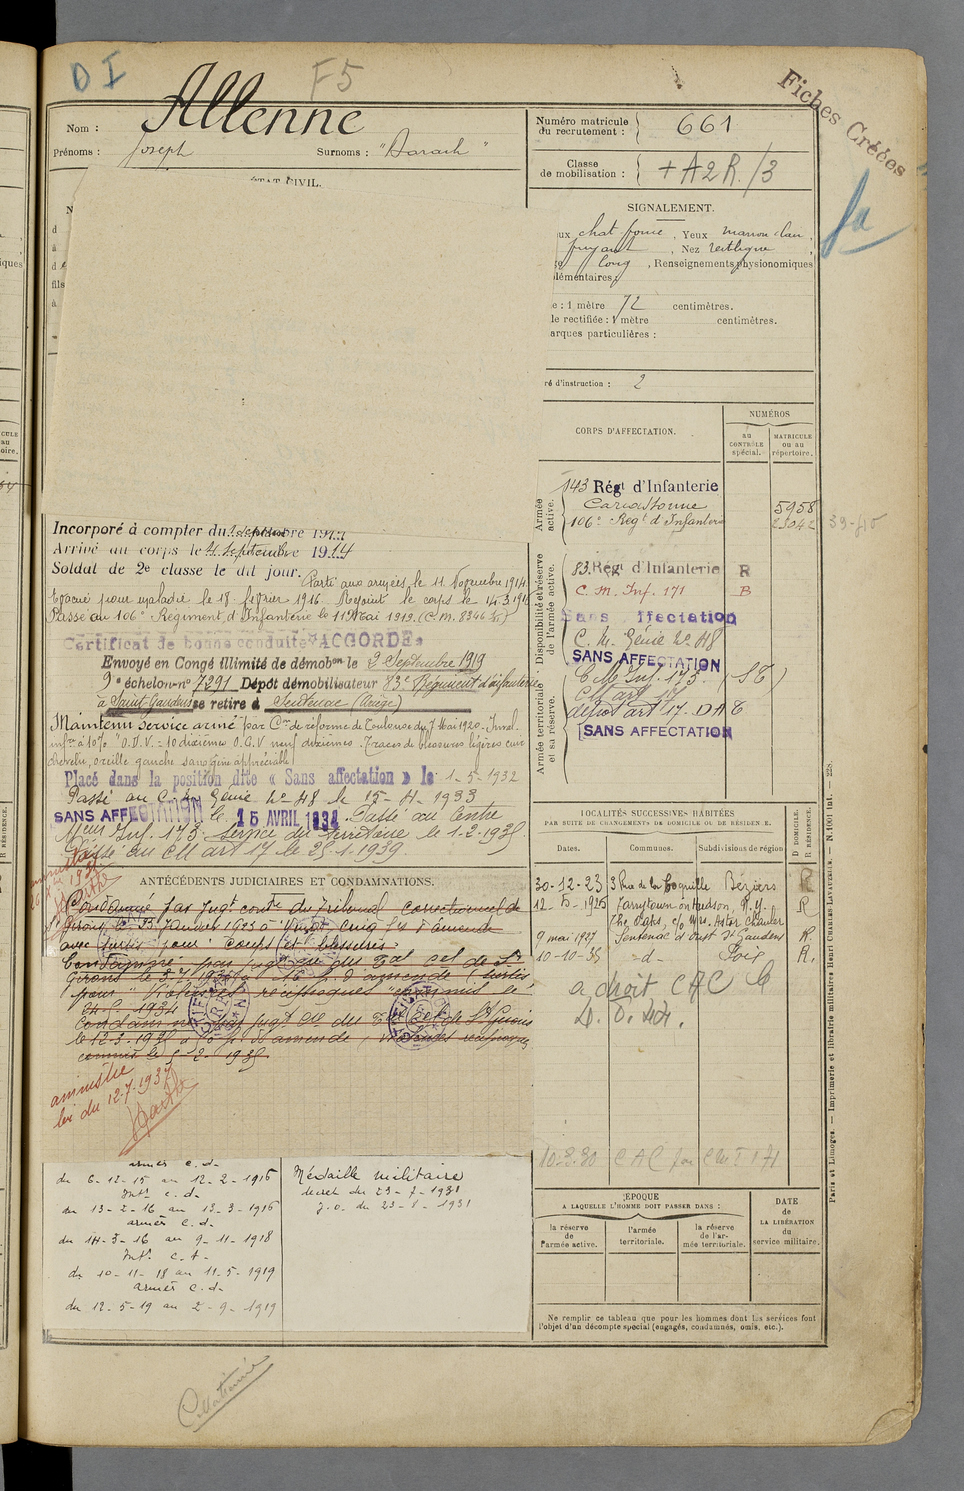 D I
F5
Fiches Créées
Nom : Allenne
Prénoms : Joseph Surnoms :
Numéro matricule du recrutement : 661
Classe de mobilisation : + A 2 R. / 3
ÉTAT CIVIL.
SIGNALEMENT.
ux chat fonce, Yeux marron clair,
fuyant, Nez rectiligne,
long, Renseignements physionomiques
lémentaires
e : 1 mètre 72 centimètres.
le rectifiée : 1 mètre centimètres.
arques particulières :
ré d'instruction : 2
CORPS D'AFFECTATION.
NUMÉROS
au CONTRÔLE spécial.
MATRICULE ou au répertoire.
Armée active.
143 Régt d'Infanterie
Carcassonne 5958
106e Régt d'Infanterie 23042
39-40
Disponibilité et réserve de l'armée active.
83 Régt d'Infanterie R
C. M. Inf. 171 B
Sans affectation
C. M. Génie No 48
SANS AFFECTATION
Armée territoriale et sa réserve.
C M Inf. 173. (ST)
CM art 17
dépot art 17 - DAT
SANS AFFECTATION
Incorporé à compter du 1 septembre 1914
Arrivé au corps le 4 Septembre 1914
Soldat de 2e classe le dit jour. Parti aux armées le 11 Novembre 1914.
Evacué pour maladie le 18 février 1916. Rejoint le corps le 14-3-1916
Passé au 106e Régiment d'Infanterie le 11 Mai 1919.
Certificat de bonne conduite "ACCORDE"
Envoyé en Congé illimité de démobon le 2 Septembre 1919
9e échelon no 7291 Dépôt démobilisateur 83e Régiment d'infanterie
à Saint Gaudens se retire à Sentenac (Ariège)
Maintenu service armé par Con de réforme de Toulouse du 7 Mai 1920. Inval.
infre à 10% O.D.V. = 10 dixièmes O.G.V neuf dixièmes. Traces de blessures légères cuir
chevelu, oreille gauche sans gêne appréciable
Placé dans la position dite « Sans affectation » le 1-5-1932
Passé au C. M. Génie No 48 le 15-4-1933
SANS AFFECTATION le 15 AVRIL 1934. Passé au Centre
Mon Inf. 173. Service du territoire le 1.2.1938.
Passé au CM art 17 le 25.1.1939
ANTÉCÉDENTS JUDICIAIRES ET CONDAMNATIONS.
Condamné par Jugt contre du Tribunal correctionnel de
St Girons le 23 Janvier 1923 à Vingt cinq frs d'amende
avec sursis pour coups et blessures.
Condamné par jugt du Bal cel de St
Girons le 1934 à 16 f d'amende (sursis)
pour "Violences réciproques" commis le
1934
Condamné par jugt du Bal cel de St Girons
le 12-3-1935 à d'amende, violences réciproques
commis le 2-1935
amnistie
loi du 12-7-1937
LOCALITÉS SUCCESSIVES HABITÉES
PAR SUITE DE CHANGEMENTS DE DOMICILE OU DE RÉSIDENCE.
Dates. Communes. Subdivisions de région D. DOMICILE. R. RÉSIDENCE.
30-12-23 3 Rue de la Coquille Béziers R
12-5-1925 Tarrytown on Hudson, N.Y. R
The Oaks, c/o Mrs. Astor Chanler
9 mai 1927 Sentenac d'Oust St Gaudens R.
10-10-35 -d- Foix R.
a droit CAC
D. O. 44.
10-2-30 CAC
armée c.d.
du 6-12-15 au 12-2-1916
Intr c.d.
du 13-2-16 au 13-3-1916
armée c.d.
du 14-3-16 au 9-11-1918
Intr c.d.
du 10-11-18 au 11-5-1919
armée c.d.
du 12-5-19 au 2-9-1919
Médaille militaire
décret du 23-7-1931
J.O. du 23-8-1931
ÉPOQUE
A LAQUELLE L'HOMME DOIT PASSER DANS :
la réserve de l'armée active.
l'armée territoriale.
la réserve de l'armée territoriale.
DATE de LA LIBÉRATION du service militaire.
Ne remplir ce tableau que pour les hommes dont les services font
l'objet d'un décompte spécial (engagés, condamnés, omis, etc.).
Paris et Limoges. — Imprimerie et librairie militaires Henri CHARLES-LAVAUZELLE. — N. 1001 int. — 228.